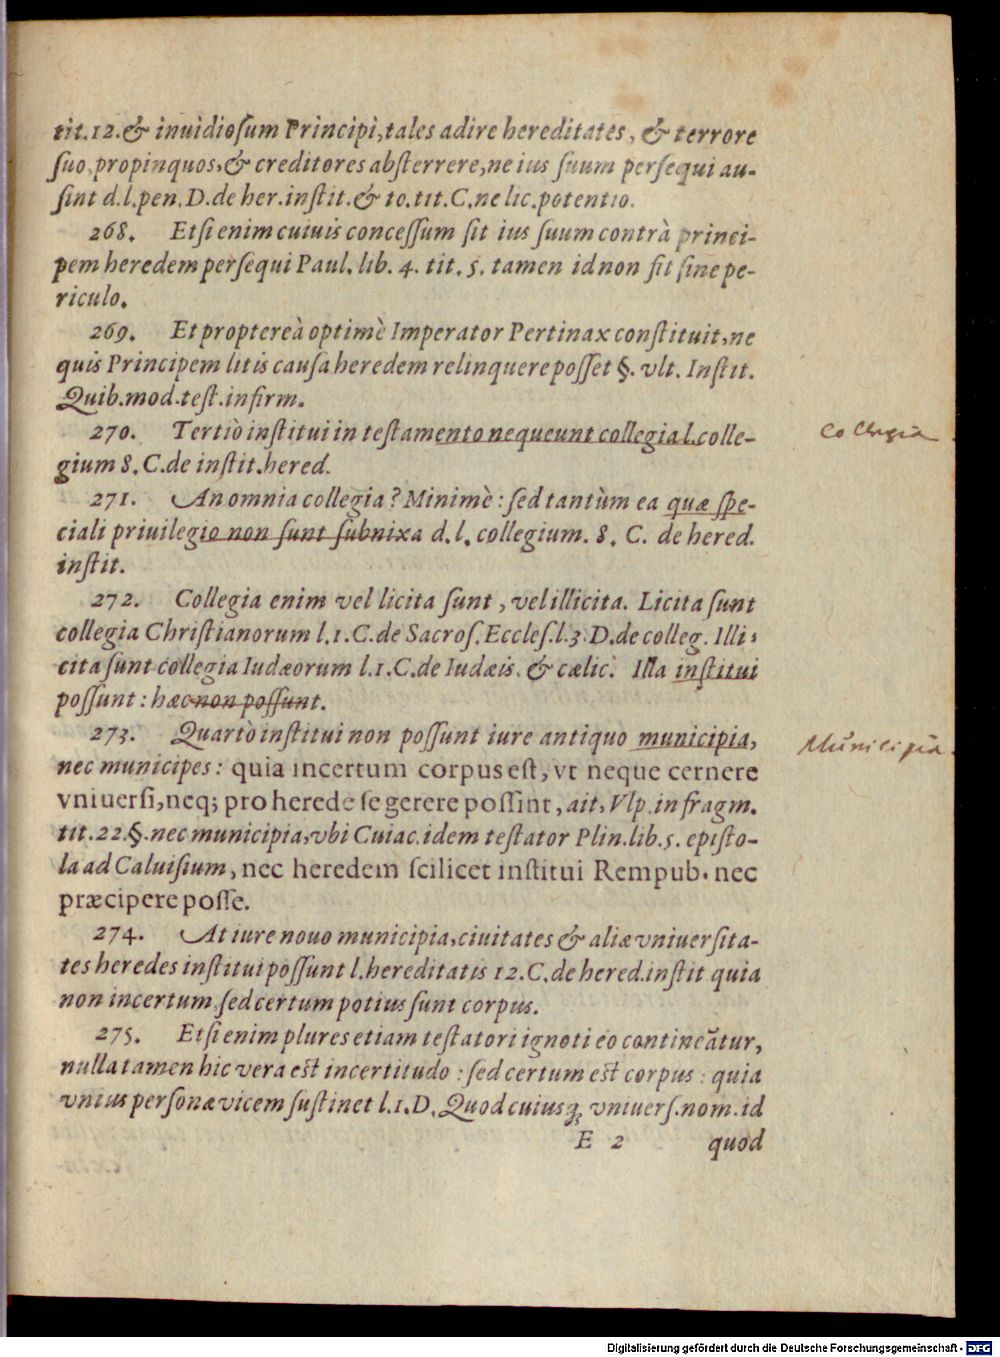 tit.12.& inuidiosum Principi,tales adire hereditates, & terrore
suo,propinquos,& creditores absterrere,ne ius suum persequi au-
sint d.l.pen.D.de her.instit.& to.tit.C.ne lic.potentio.
268. Etsi enim cuiuis concessum sit ius suum contrà princi-
pem heredem persequi Paul. lib. 4. tit. 5. tamen id non fit sine pe-
riculo.
269. Et propterà optimè Imperator Pertinax constituit,ne
quis Principem litis causa heredem relinquere posset §. vlt. Instit.
Quib.mod.test.infirm.
270. Tertiò institui in testamento nequeunt collegia l.colle-
gium 8. C.de instit.hered.
Collegia
271. An omnia collegia? Minimè: sed tantùm ea quæ spe-
ciali priuilegio non sunt subnixa d.l. collegium. 8. C. de hered.
instit.
272. Collegia enim vel licita sunt, vel illicita. Licita sunt
collegia Christianorum l.1.C.de Sacros.Eccles.l.3.D.de colleg. Illi-
cita sunt collegia Iudæorum l.1.C.de Iudæis. & cælic. Illa institui
possunt: hæc non possunt.
273. Quartò institui non possunt iure antiquo municipia,
Municipia
nec municipes: quia incertum corpus est, vt neque cernere
vniuersi,neq; pro herede se gerere possint, ait, Vlp.in fragm.
tit.22.§.nec municipia,vbi Cuiac.idem testator Plin.lib.5. episto-
la ad Caluisium, nec heredem scilicet institui Rempub. nec
præcipere posse.
274. At iure nouo municipia,ciuitates & aliæ vniuersita-
tes heredes institui possunt l.hereditatis 12.C.de hered.instit quia
non incertum sed certum potius sunt corpus.
275. Etsi enim plures etiam testatori ignoti eo contineātur,
nulla tamen hic vera est incertitudo: sed certum est corpus: quia
vnius personæ vicem sustinet l.1.D. Quod cuiusq; vniuers.nom.id
E 2 quod
Digitalisierung gefördert durch die Deutsche Forschungsgemeinschaft - DFG